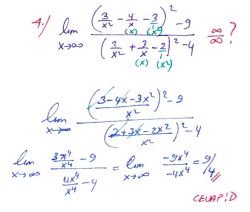 4.) lim x→∞ ((3/x² - 4/x - 3/1)² - 9) / ((2/x² + 3/x - 2/1)² - 4) ∞/∞ ?
(x) (x²)
(x) (x²)
lim x→∞ ((3-4x-3x²)/x²)² - 9) / ((2+3x-2x²)/x²)² - 4)
lim x→∞ (3x⁴/x⁴ - 9) / (4x⁴/x⁴ - 4) = lim x→∞ -9x⁴/-4x⁴ = 9/4
CEVAP:D